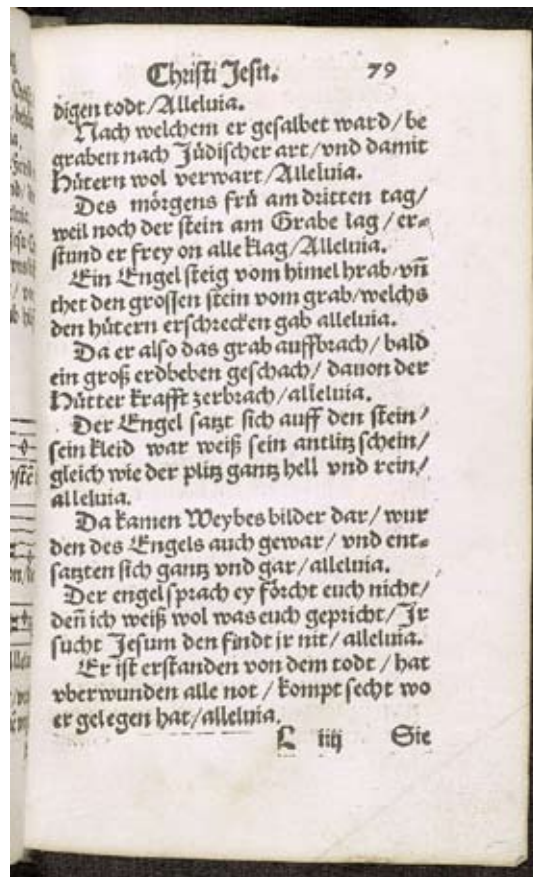 Christi Jesu. 79
digen todt/Alleluia.
Nach welchem er gesalbet ward/be
graben nach Jüdischer art/vnd damit
Hütern wol verwart/Alleluia.
Des mörgens frü am dritten tag/
weil noch der stein am Grabe lag/er⸗
stund er frey on alle klag/Alleluia.
Ein Engel steig vom himel hrab/vñ
thet den grossen stein vom grab/welchs
den hütern erschrecken gab alleluia.
Da er also das grab auffbrach/bald
ein groß erdbeben geschach/dauon der
Hütter krafft zerbrach/alleluia.
Der Engel satzt sich auff den stein/
sein kleid war weiß sein antlitz schein/
gleich wie der plitz gantz hell vnd rein/
alleluia.
Da kamen Weybesbilder dar/wur
den des Engels auch gewar/vnd ent⸗
satzten sich gantz vnd gar/alleluia.
Der engel sprach ey förcht euch nicht/
deñ ich weiß wol was euch gepricht/Jr
sucht Jesum den findt ir nit/alleluia.
Er ist erstanden von dem todt/hat
vberwunden alle not/kompt secht wo
er gelegen hat/alleluia.
L iiij Sie